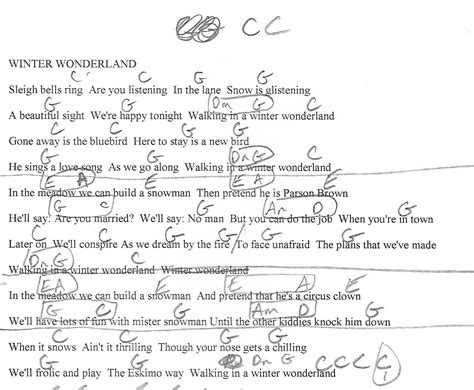 C C
WINTER WONDERLAND
C C G G
Sleigh bells ring Are you listening In the lane Snow is glistening
G G Dm G C
A beautiful sight We're happy tonight Walking in a winter wonderland
C C G G
Gone away is the bluebird Here to stay is a new bird
G G Dm G C
He sings a love song As we go along Walking in a winter wonderland
E A E E A E
In the meadow we can build a snowman Then pretend he is Parson Brown
G C G Am D G
He'll say: Are you married? We'll say: No man But you can do the job When you're in town
C C G G G
Later on We'll conspire As we dream by the fire / To face unafraid The plans that we've made
Dm G C
Walking in a winter wonderland Winter wonderland
E A E E A E
In the meadow we can build a snowman And pretend that he's a circus clown
G C G Am D G
We'll have lots of fun with mister snowman Until the other kiddies knock him down
C C G G
When it snows Ain't it thrilling Though your nose gets a chilling
G G Dm G C C C C
We'll frolic and play The Eskimo way Walking in a winter wonderland 1